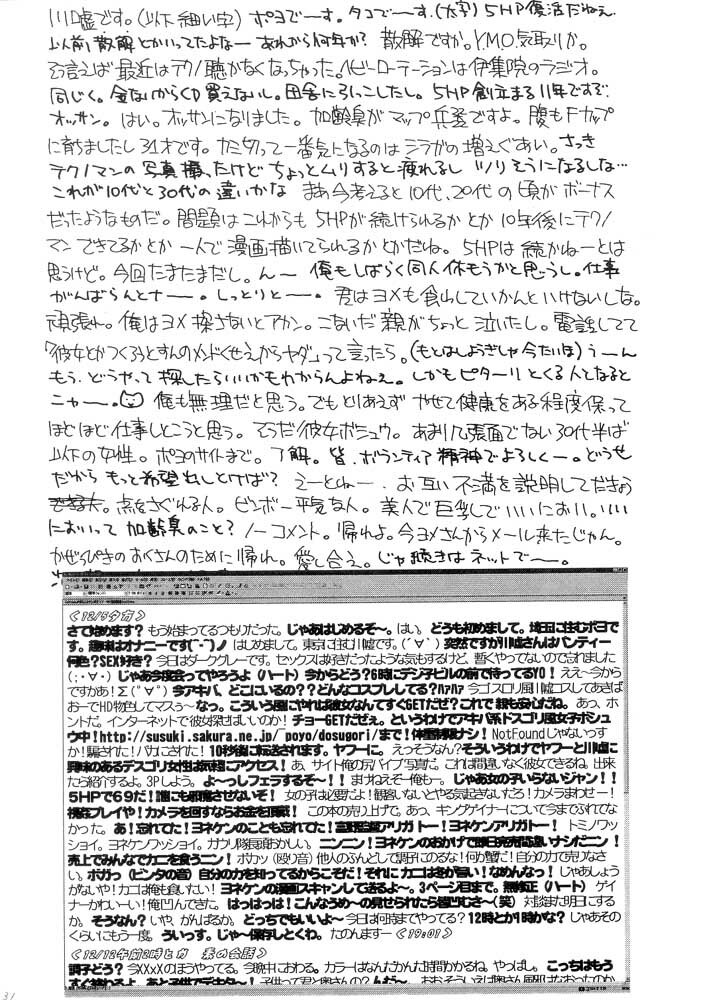 川嘘です。(以下細い字) ポヨでーす。タコでーす。(太字) 5HP復活だねえ
以前、散解とかいってたよなー あれから何年か？ 散解ですか。Y.M.O.気取りか。
そう言えば最近はテクノ聴かなくなっちゃった。ヘビーローテーションは伊集院のラジオ。
同じく。金ないからCD買えないし。田舎に引っこしたし。5HP創立まる11年ですぞ
オッサン。はい。オッサンになりました。加齢臭がマップ兵器ですよ。腹もFカップ
に育ちましたし31才です。カミ切って一番気になるのはシラガの増えぐあい。さっき
テクノマンの写真撮ったけどちょっとムリすると疲れるし ツリそうになるしな…
これが10代と30代の違いかな まあ今考えると10代、20代の頃がボーナス
だったようなものだ。問題はこれからも5HPが続けられるかとか10年後にテクノ
マンできてるかとか一人で漫画描いてられるかとかだね。5HPは続かねーとは
思うけど。今回たまたまだし。んー 俺もしばらく同人休もうかと思うし。仕事
がんばらんとナー。しっとりとー。君はヨメも食わしていかんといけないしな。
頑張れ。俺はヨメ探さないとアカン。こないだ親がちょっと泣いたし。電話してて
「彼女とかつくろうとすんのメンドくせえからヤダ」って言ったら。(もとはしょうぎしゃ今たいほ) うーん
もう、どうやって探したらいいかもわからんよねえ。しかもピターリとくる人となると
ニャー。俺も無理だと思う。でもとりあえずやせて健康をある程度保って
ほどほど仕事しとこうと思う。そうだ彼女ボシュウ。あまり几張面でない30代半ば
以下の女性。ポヨのサイトまで。了解。皆、ボランティア精神でよろしくー。どうせ
だからもっと希望出しとけば？ えーとねー、お互い不満を説明してだきょう
できる人。点をさぐれる人。ビンボー平気な人。美人で巨乳でいいにおい。いい
においって加齢臭のこと？ ノーコメント。帰れよ。今ヨメさんからメール来たじゃん。
かぜっぴきのおくさんのために帰れ。愛し合え。じゃ続きはネットでー。
<12/5夕方>
さて始めます？もう始まってるつもりだった。じゃあはじめるぞ～。はい。どうも初めまして。埼玉に住むポヨで
す。趣味はオナニーです(｀ー´)ノ はじめまして。東京に住む川嘘です。(´∀｀) 突然ですが川嘘さんはパンティー
何色？SEX好き？今日はダークグレーです。セックスは好きだったような気もするけど、暫くやってないので忘れました
(;・∀・) じゃあ今度会ってやろうよ(ハート) 今からどう？6時にデジ子ビルの前で待ってるYO！ええ～今から
ですかあ！Σ(ﾟ∀ﾟ) 今アキバ、どこにいるの？？どんなコスプレしてる？ﾊｧﾊｧ 今ゴスロリ風川嘘コスしてあきば
お～でHD物色してマスぅ～なっ。こういう風にやれば彼女なんてすぐGETだぜ？これで親も安心だね。あっ、ホ
ントだ。インターネットで彼女探せばいいのか！チョーGETだぜぇ。というわけでアキバ系ドスゴリ風女子ボシュ
ウ中！http://susuki.sakura.ne.jp/~poyo/dosugori/まで！体重制限ナシ！NotFoundじゃないっす
か！騙された！パカにされた！10秒後に転送されます。ヤフーに。えっそうなん？そういうわけでヤフーと川嘘に
興味のあるデスゴリ女性は気軽にアクセス！あ、サイト俺の尻パイプ写真だ。これは間違いなく彼女できるね。出来
たら紹介するよ。3Pしよう。よ～っしフェラするぞ～！！まずねえぞ～俺も～。じゃあ女の子いらないジャン！！
5HPで69だ！誰にも邪魔させないぞ！女の子は必要だよ！観客いないとやる気起きないだろ！カメラまわせー！
視姦プレイや！カメラを回すならお金を頂戴！この本の売り上げで。あっ、キングゲイナーについて今までふれてな
かった。あ！忘れてた！ヨネケンのことも忘れてた！富野監督アリガトー！ヨネケンアリガトー！トミノワッ
ショイ。ヨネケンワッショイ。カナリ隊長恥ずかしい。ニンニン！ヨネケンのおかげで即日完売間違いナシだニン！
売上でみんなでカニを食うニン！ポカッ(殴り音) 他人のふんどしで調子にのるな！何が蟹だ！自分の力で売りなさ
い。ボガっ(ビンタの音) 自分の力を知ってるからこそだ！それにカニは冬が旨い！なめんなっ！じゃあしょう
がないや！カニは俺も食いたい！ヨネケンの漫画スキャンして送るよ～。3ページ目まで。無修正(ハート) ゲイ
ナーかわいーい！俺凹んできた。はっはっは！こんなうめ～の見せられたら皆凹むさ～(笑) 対談また明日にする
か。そうなん？いや、がんばるか。どっちでもいいよ～ 今日は何時までやってる？12時とか1時かな？じゃあその
くらいにもう一度。ういっす。じゃ～保存しとくわ。たのんますー <19:01>
<12/12午前2時とか 素の会話>
調子どう？今XXXXのほうやってる。今晩中におわる。カラーはなんだかんだ時間かかるね。やっぱし。こっちはもう
31